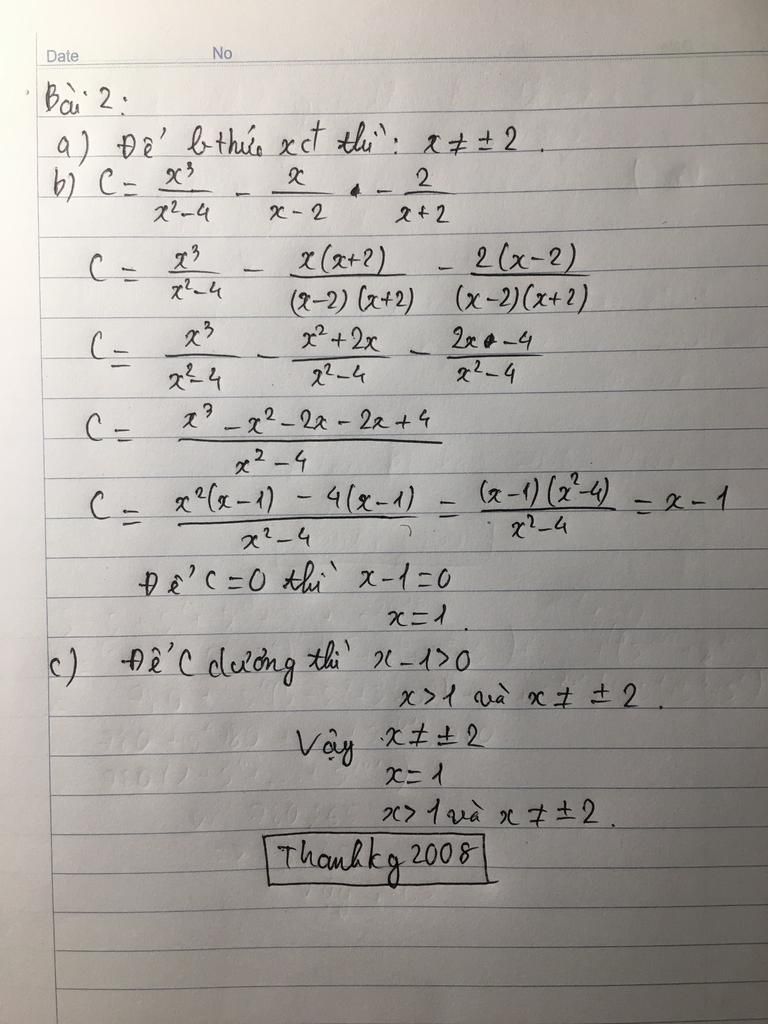 Date No
Bài 2:
a) Để b thức xđ thì: x ≠ ± 2.
b) C = x³/(x²-4) - x/(x-2) - 2/(x+2)
C = x³/(x²-4) - x(x+2)/((x-2)(x+2)) - 2(x-2)/((x-2)(x+2))
C = x³/(x²-4) - (x²+2x)/(x²-4) - (2x-4)/(x²-4)
C = (x³-x²-2x-2x+4)/(x²-4)
C = (x²(x-1) - 4(x-1))/(x²-4) = (x-1)(x²-4)/(x²-4) = x-1
Để C=0 thì x-1=0
x=1.
c) Để C dương thì x-1>0
x>1 và x ≠ ± 2.
Vậy x ≠ ± 2
x=1
x>1 và x ≠ ± 2.
Thanhkg2008